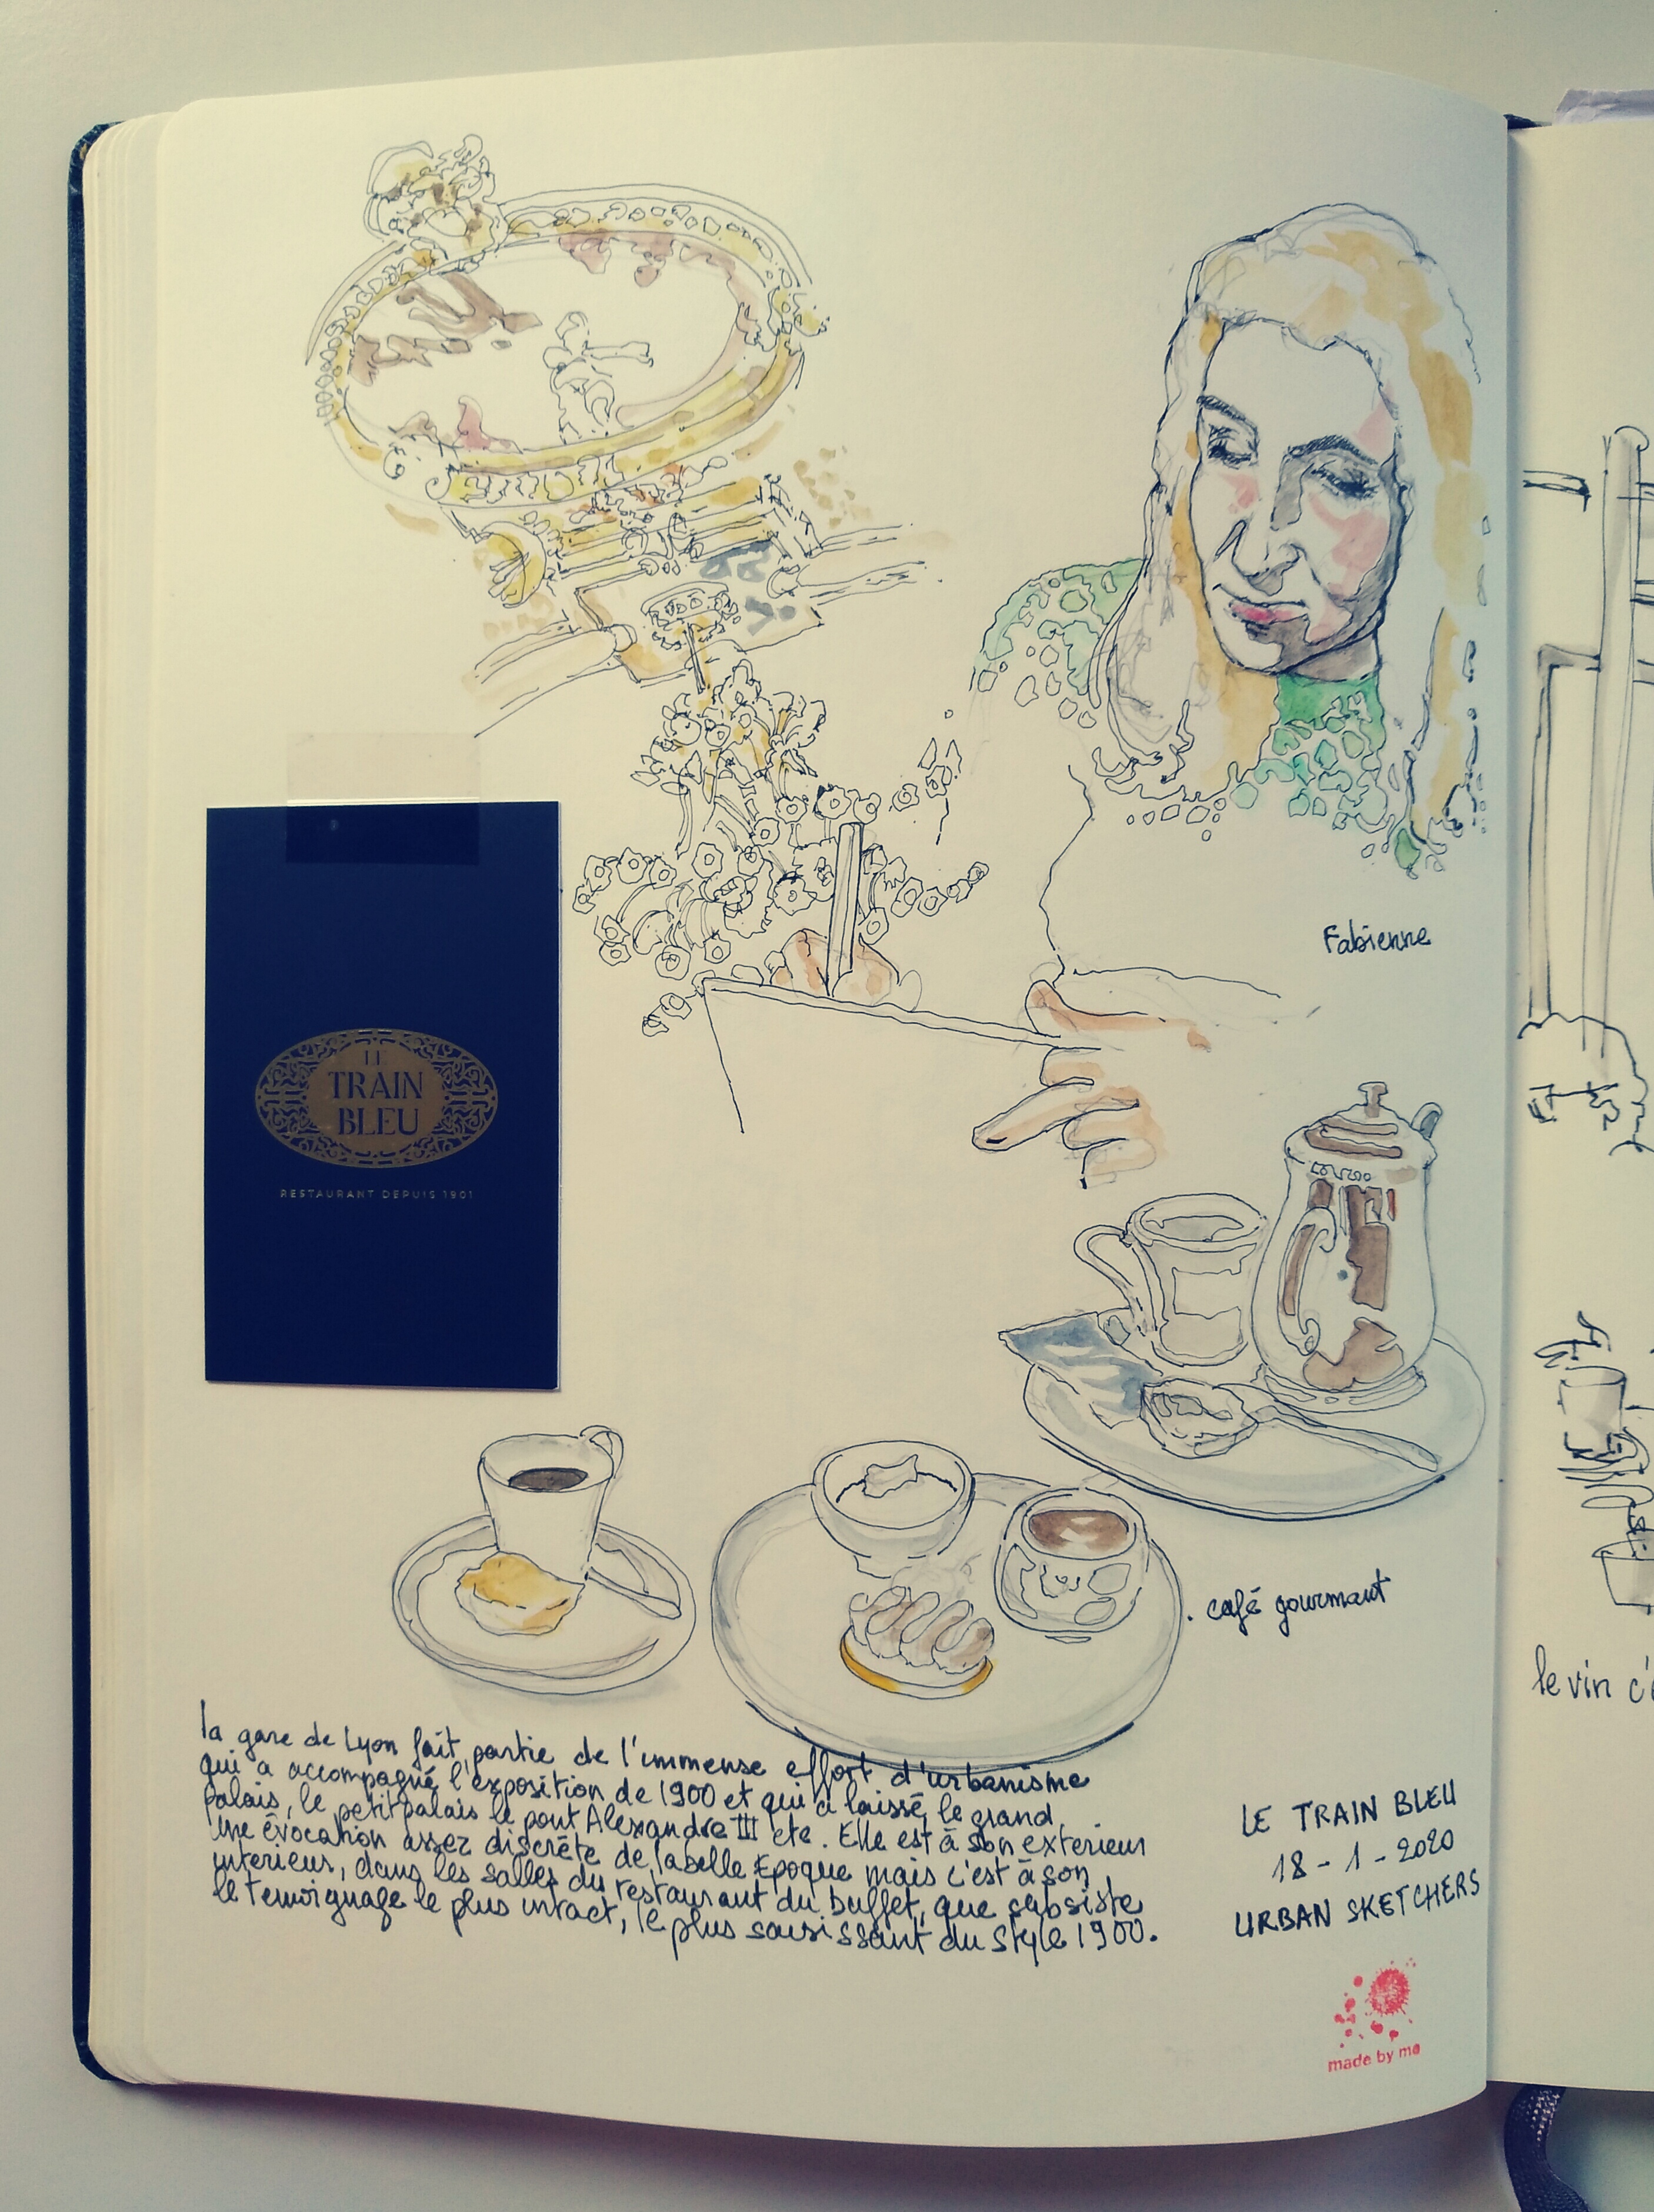 Fabienne
LE
TRAIN
BLEU
RESTAURANT DEPUIS 1901
. café gourmant
le vin c'
la gare de Lyon fait partie de l'immense effort d'urbanisme
qui a accompagné l'exposition de 1900 et qui a laissé le grand
palais, le petit palais le pont Alexandre III etc. Elle est à son exterieur
une évocation assez discrète de la belle Epoque mais c'est à son
interieur, dans les salles du restaurant du buffet, que subsiste
le temoignage le plus intact, le plus saisissant du style 1900.
LE TRAIN BLEU
18-1-2020
URBAN SKETCHERS
made by me